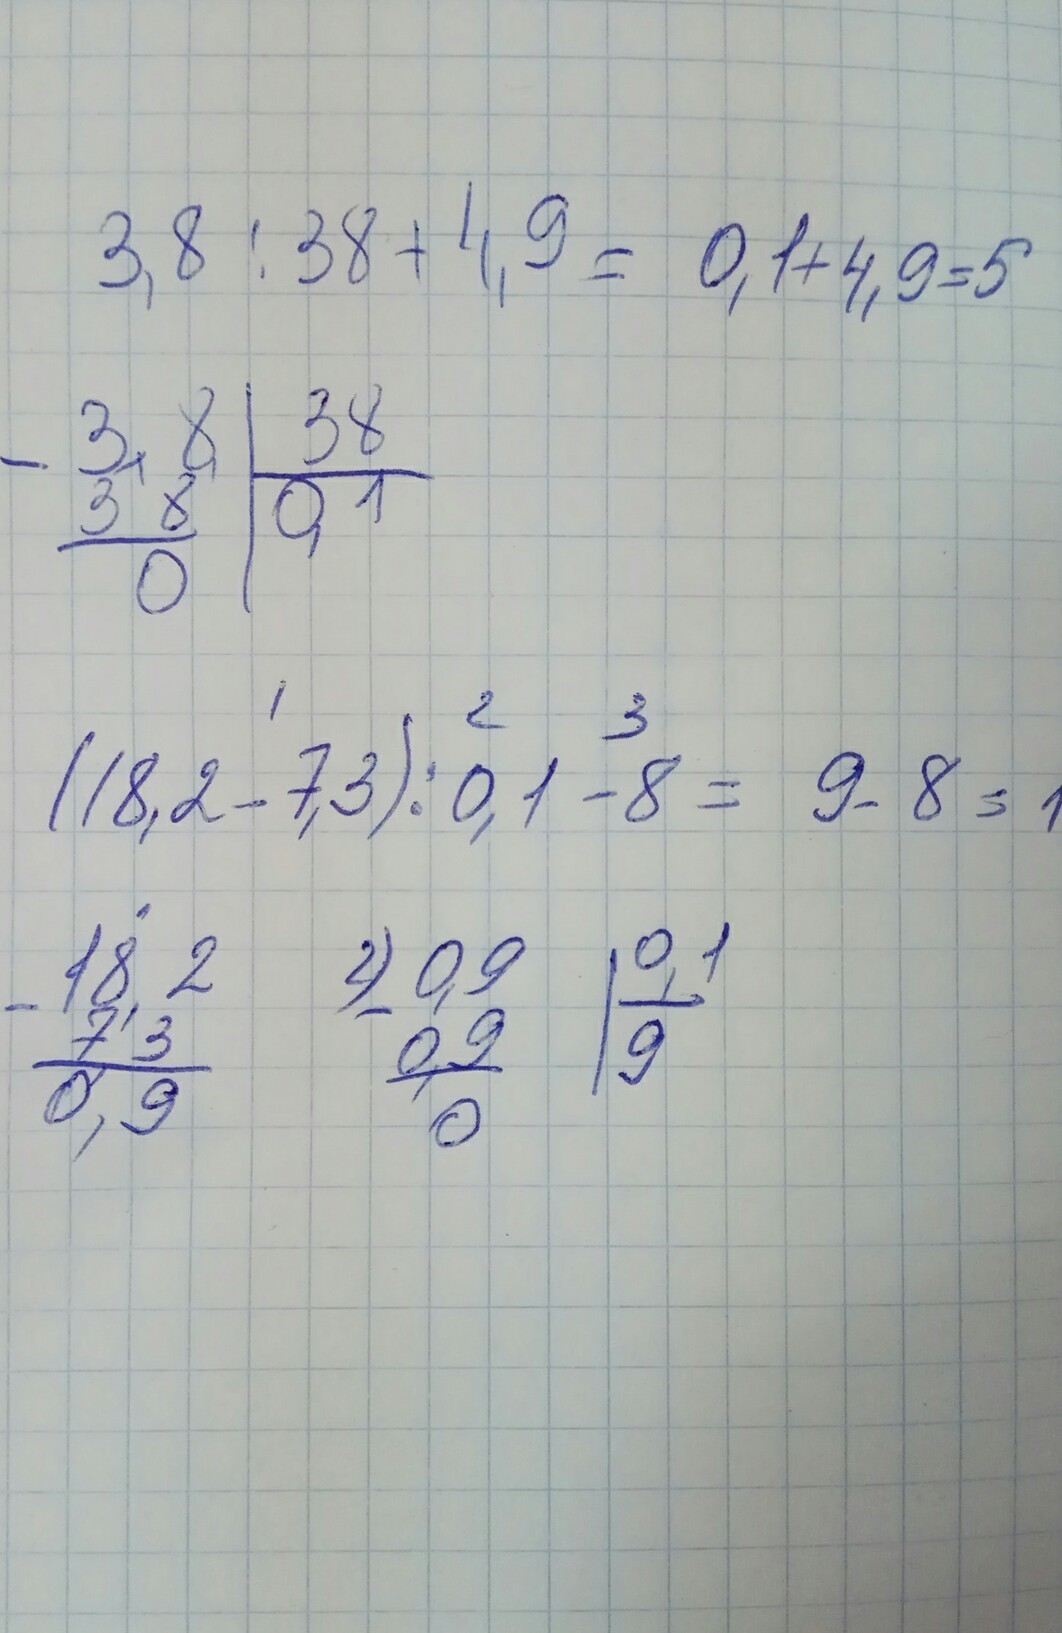 3,8 : 38 + 4,9 = 0,1 + 4,9 = 5
- 3,8 | 38
3 8 | 0,1
0
1 2 3
(18,2 - 7,3) : 0,1 - 8 = 9 - 8 = 1
- 18,2 2) - 0,9 | 0,1
7,3 0,9 | 9
0,9 0